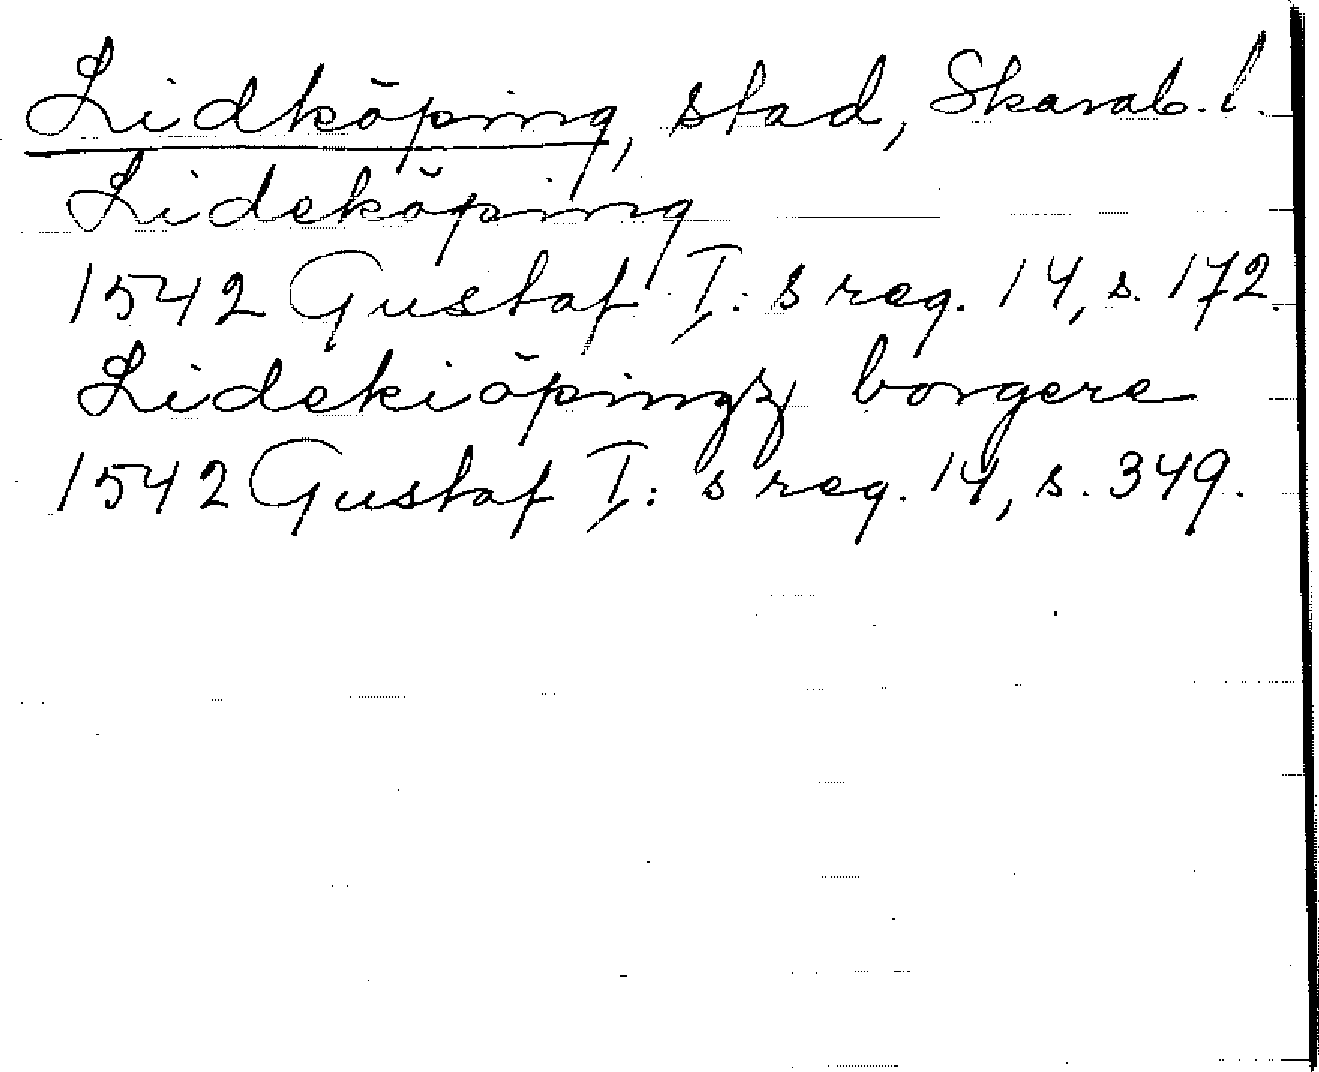 Lidköping, stad, Skarab. l.
Lideköping
1542 Gustaf I:s reg. 14, s. 172.
Lidekiöpingz borgere
1542 Gustaf I:s reg. 14, s. 349.